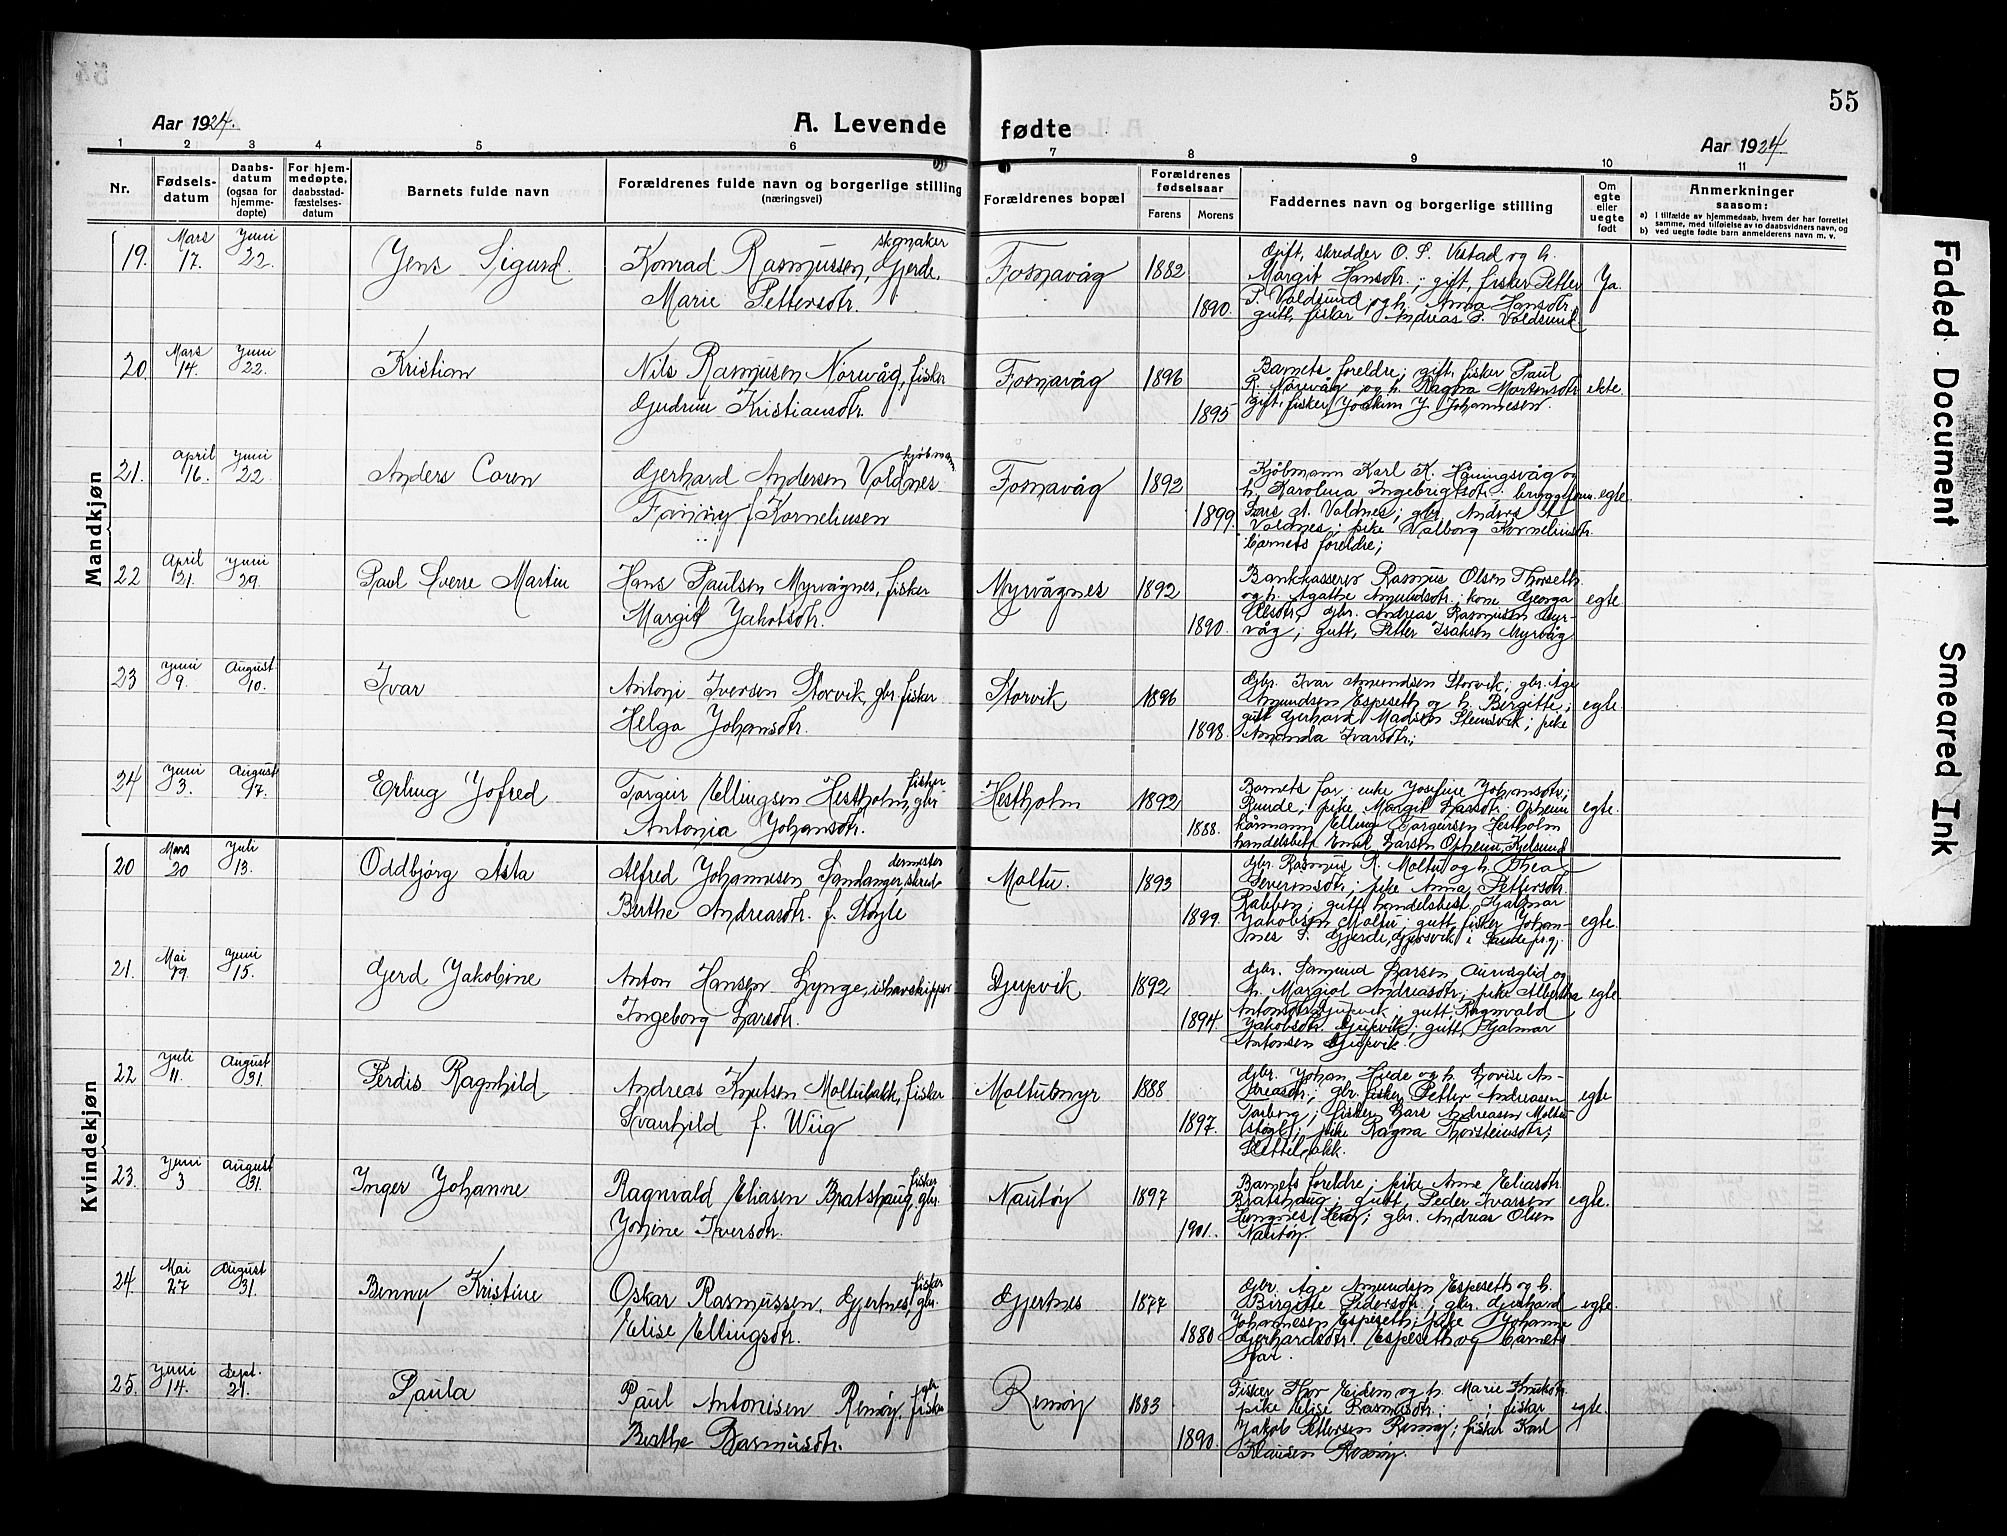 55
Aar 1924.
A. Levende fødte
Aar 1924
1 2 3 4 5 6 7 8 9 10 11
Nr.
Fødsels-
datum
Daabs-
datum
(ogsaa for
hjemme-
døpte)
For hjem-
medøpte,
daabsstad-
fæstelses-
datum
Barnets fulde navn
Forældrenes fulde navn og borgerlige stilling
(næringsvei)
Forældrenes bopæl
Forældrenes
fødselsaar
Farens
Morens
Faddernes navn og borgerlige stilling
Om
egte
eller
uegte
født
Anmerkninger
saasom:
a) I tilfælde av hjemmedaab, hvem der har forrettet
samme, med tilføielse av to daabsvidners navn, og
b) ved uegte fødte barn anmelderens navn m. v.
Mandkjøn
19. Mars 17. Juni 22. Jens Sigurd.
Konrad Rasmussen, Gjerde, skomaker
Marie Pettersdtr.
Fosnavåg 1882 1890.
Gift, skredder O. S. Vestad og h.
Margit Hansdtr.; gift, fisker Petter
P. Voldsund og h. Anna Hansdtr.
gutt, fisker Andreas P. Voldsund
Ja.
20. Mars 14. Juni 22. Kristian
Nils Rasmusen Norvåg, fisker
Gudrun Kristiansdtr.
Fosnavåg 1896 1895
Barnets foreldre; gift, fisker Paul
R. Norvåg og h. Ragna Mortensdtr.
gift, fisker Joakim J. Johannesen.
ekte.
21. April 16. Juni 22. Anders Coren
Gerhard Andersen Voldnes kjøbmann
Fanny f. Kornelius​en
Fosnavåg 1892 1899.
Kjøbmann Karl K. Honingsvåg og
h. Karolina Ingebrigtsdtr. bryggeform.
Lars A. Voldnes; gbr. Anders A.
Voldnes; pike Valborg Korneliusdtr.
barnets foreldre;
egte.
22 April 21. Juni 29. Paul Sverre Martin
Hans Paulsen Myrvågnes, fisker
Margit Jakobsdtr.
Myrvågnes 1892 1890.
Bankkasserer Rasmus Olsen Thorseth
og h. Agathe Amundsdtr.; kone Georga
Olsdtr. gbr. Andreas Rasmusen Myr-
våg; gutt, Petter Isaksen Myrvåg
egte.
23 Juni 9. August 10. Ivar
Antoni Iversen Storvik, gbr. fisker
Helga Johansdtr.
Storvik 1896 1898.
Gbr. Ivar Amundsen Storvik; gbr. Åge
Amundsen Espeseth og h. Birgitte;
gutt Gerhard Madsen Stensvik; pike
Amanda Ivarsdtr.;
egte.
24 Juni 3. August 17. Erling Jofred
Torgeir Ellingsen Hestholm, gbr. fisker
Antonia Johansdtr.
Hestholm 1892 1888.
Barnets far; enke Josefine Johansdtr;
Runde; pike Margit Larsdtr. Opheim
kårmann Elling Torgersen Hestholm
handelsbetj. Emil Larsen Opheim, Kjelsund
egte.
Kvindekjøn
20 Mars 20 Juli 13. Oddbjørg Åsta
Alfred Johannesen Sandanger, skred-
dermester
Berthe Andreasdtr. f. Støyle
Moltu. 1893 1899.
gbr. Rasmus R. Moltu og h. Thea
Severinsdtr; pike Anna Pettersdtr.
Rabben; gutt handelsbest. Hjalmar
Jakobsen Moltu; gutt, fisker Johan-
nes S. Gjerde, Gjersvik i Sande pgj.
egte.
21. Mai 19 Juni 15. Gerd Jakobine
Anton Hansen Lynge, ishavskipper
Ingeborg Larsdtr.
Djupvik 1892 1894.
Gbr. Samund Larsen Aurvåglid og
h. Margiot Andreasdtr; pike Albertha
Antonsdtr. Djupvik gutt, Ragnvald
Jakobsdtr. Djupvik; gutt, Hjalmar
Antonsen Djupvik.
egte.
22 Juli 11. August 31. Perdis Ragnhild
Andreas Knutsen Moltubakk, fisker
Svanhild f. Wiig
Moltubmyr 1888 1897.
Gbr. Johan Hide og h. Lovise An-
dreasdtr; gbr. fisker Petter Andreasen
Torberg; fisker Lars Andreasen Moltu
(støyl); pike Ragna Thorsteinsdtr;
Slettebakk.
egte
23. Juni 3 August 31. Inger Johanne
Ragnvald Eliasen Bratshaug, gbr. fisker
Jonine Iversdtr.
Nautøy 1897 1901.
Barnets foreldre; pike Anne Eliasdtr.
Bratshaug; gutt Peder Ivarsen
Hungnes Herøy; gbr. Andreas Olsen
Nautøy.
egte.
24. Mai 27 August 31. Benny Kristine
Oskar Rasmussen, Gjertnes, gbr. fisker
Elise Ellingsdtr.
Gjertnes 1877 1880
Gbr. Åge Amundsen Espeseth og h.
Birgitte Pedersdtr.; gbr. Gerhard
Johannesen Espeseth; pike Johanne
Gerhardsdtr. Espeseth og barnets
far.
egte.
25. Juni 14. Sept. 21. Paula
Paul Antonisen Remøy, gbr. fisker
Berthe Rasmusdtr.
Remøy 1883 1890.
Fisker Thor Eidem og h. Marie Knutsdtr.
pike Elise Rasmusdtr.; fisker
Jakob Pettersen Remøy; fisker Karl
Klausen Remøy.
egte.
Faded Document
Smeared Ink